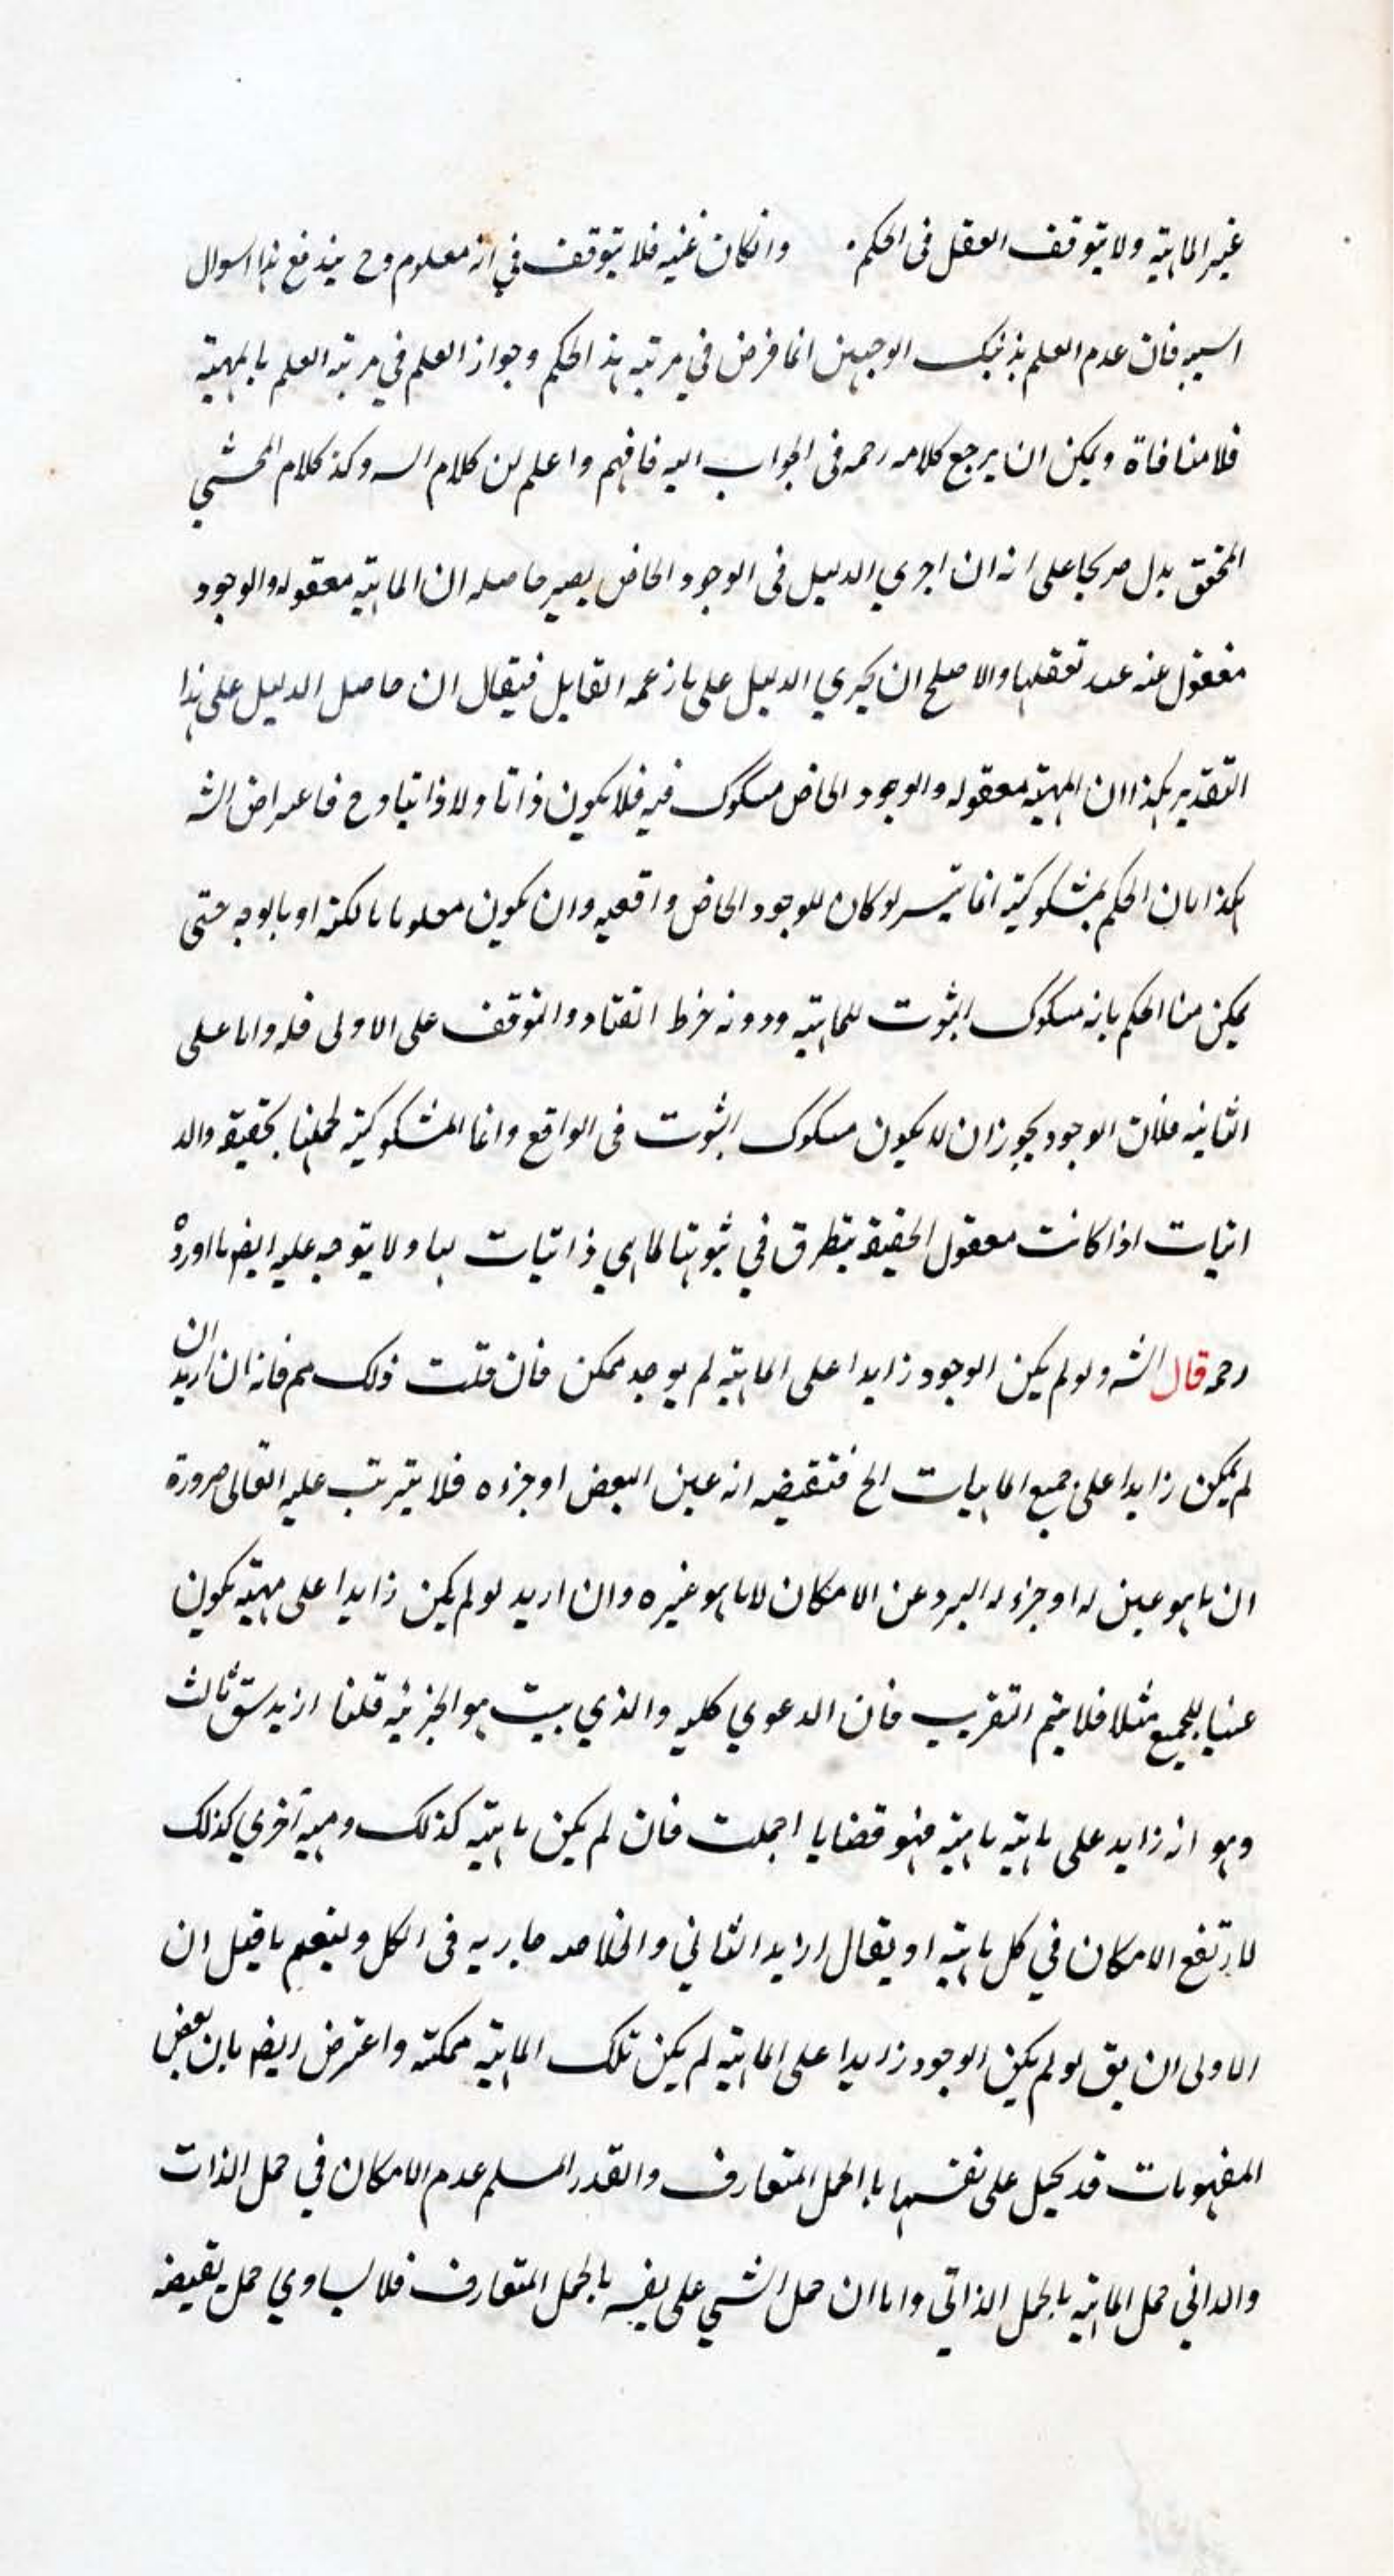 غير الماهية ولا يتوقف العقل في الحكم وانكان عينه فلا يتوقف في انه معلوم وح يندفع هذا السوال
اسيه فان عدم العلم بذينك الوجهين انما فرض في مرتبه هذا الحكم وجواز العلم في مرتبه العلم بالمهية
فلا منافاة ويمكن ان يرجع كلامه رحمه فى الجواب اليه فافهم واعلم ان كلام السـ وكذ كلام المحشي
المحقق يدل صريحا على انه ان اجري الدليل فى الوجود الخاص يصير حاصله ان الماهية معقوله والوجود
مغفول عنه عند تعقلها والاصلح ان يجري الدليل على ما زعمه القايل فيقال ان حاصل الدليل على هذا
التقدير هكذا ان المهية معقوله والوجود الخاص مشكوك فيه فلا يكون ذاتا ولا ذاتيا وح فاعتراض الشـ
هكذا بان الحكم بمشكوكية انما تيسر لو كان للوجود الخاص واقعيه وان يكون معلوما بالكنه او بالوجه حتى
يمكن منا الحكم بانه مشكوك الثبوت للماهية ودونه خرط القتاد والتوقف على الاولى فله واما على
الثانيه فلان الوجود يجوز ان لا يكون مشكوك الثبوت فى الواقع وانما المشكوكية لجهلنا بحقيقة والد
اتيات اذا كانت معقول الحقيقة يتطرق في ثبوتها لما هي ذاتيات لها ولا يتوجه عليه ايضا ما اورده
رحمه قال الشـ ولو لم يكن الوجود زايدا على الماهية لم يوجد ممكن فان قلت ذلك مم فانه ان اريد ان
لم يكن زايدا على جميع الماهيات الخ فنقيضه انه عين البعض او جزءه فلا يترتب عليه التعالى ضرورة
ان ما هو عين له او جزء له البرو عن الامكان لا ما هو غيره وان اريد لو لم يكن زايدا على مهية يكون
عينا للجميع مثلا فلا يتم التقريب فان الدعوي كليه والذي يثبت هو الجزئيه قلنا اريد شق ثالث
وهو انه زايد على ماهية ماهية فهو قضايا اجملت فان لم يكن ماهية كذلك ومهية اخري كذلك
لارتفع الامكان في كل ماهية او يقال اريد الثاني والخلاصه جاريه فى الكل ولنعم ما قيل ان
الاولى ان يق لو لم يكن الوجود زايدا على الماهية لم يكن تلك الماهية ممكنه واعترض ايضا بان بعض
المفهومات قد يحمل على نفسها بالحمل المتعارف والقدر المسلم عدم الامكان في حمل الذات
والداتي حمل الماهية بالحمل الذاتي واما ان حمل الشي على نفسه بالحمل المتعارف فلا يساوي حمل نقيضه